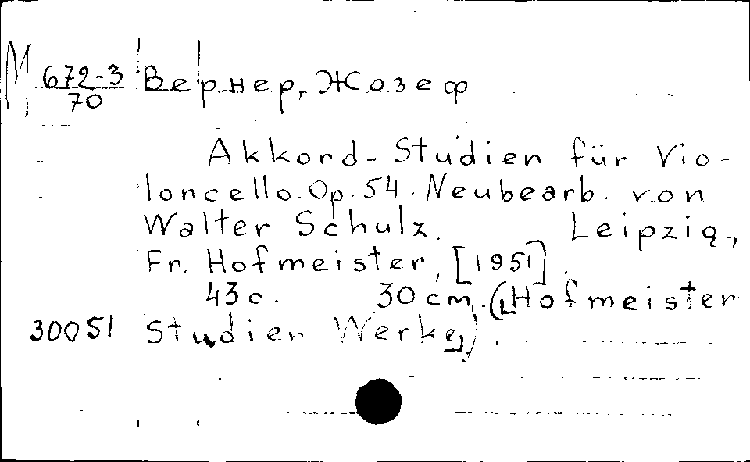 М 672-3/70 Вернер, Жозеф
Akkord-Studien für Vio-
loncello. Op. 54. Neubearb. von
Walter Schulz. Leipzig,
Fr. Hofmeister, [1951].
43 с. 30 cm. (Hofmeister
30051 Studien Werke).